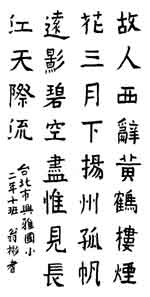 故人西辭黃鶴樓煙
花三月下揚州孤帆
遠影碧空盡惟見長
江天際流
台北市興雅國小
二年十班 翁彬